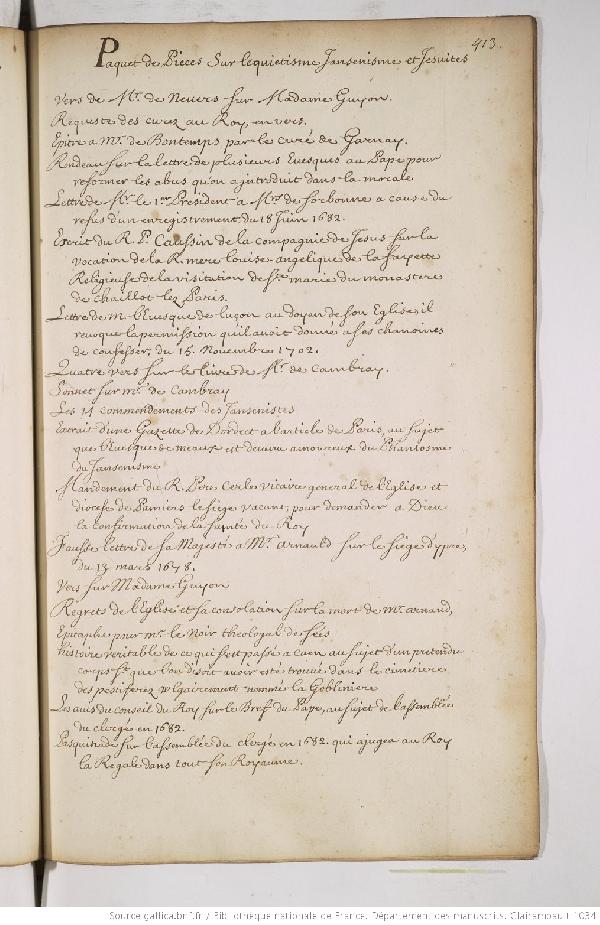 413.
Paquet de Pieces Sur lequietisme Jansenisme et Jesuites
Vers de Mr. de Nevers sur Madame Guyon.
Requeste des curez au Roy, en vers.
Epitre a Mr. de Bontemps par le curé de Garnay.
Rondeau sur la lettre de plusieurs Evesques au Pape pour
reformer les abus qu'on a introduit dans la morale
Lettre de Mr. le 1er President a Mrs de Sorbonne a cause du
refus d'un enregistrement du 18 Juin 1682.
Escrit du R. P. Caussin de la compagnie de Jesus sur la
vocation de la R. mere louise angelique de la fayette
Religieuse de la visitation de Ste marie du monastere
de chaillot lez Paris.
Lettre de mr l'Evesque de luçon au doyen de son Eglise, il
revoque la permission qu'il avoit donnée a ses chanoines
de confesser, du 15. Novembre 1702.
Quatre vers sur le livre de Mr. de Cambray.
Sonnet sur mr. de Cambray
Les 11 commendements des Jansenistes
Extrait d'une Gazette de Dordrect a l'article de Paris, au sujet
que l'Evesque de meaux est devenu amoureux du Phantosme
du Jansenisme
Mandement du R. Pere Cerle vicaire general de l'Eglise et
diocese de Pamiers le siege vacant, pour demander a Dieu
la confirmation de la santé du Roy
Fausse lettre de sa Majesté a Mr arnauld sur le siege d'ypre,
du 13 mars 1678.
Vers sur Madame Guyon
Regrets de l'Eglise et sa consolation sur la mort de mr arnaud,
Epitaphe pour mr. le Noir theologal de Séis
histoire veritable de ce qui s'est passé a Caen au sujet d'un pretendu
corps St. que l'on disoit avoir esté trouvé dans le cimetiere
des pestiferez vulgairement nommé la Gobliniere
Les avis du conseil du Roy sur le Bref du Pape, au sujet de l'assemblée
du clergé en 1682.
Pasquinade sur l'assemblée du clergé en 1682. qui ajugea au Roy
la Regale dans tout son Royaume.
Source gallica.bnf.fr / Bibliothèque nationale de France. Département des manuscrits. Clairambault 1034